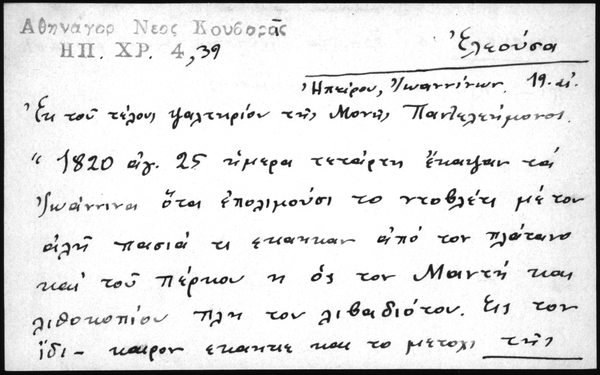 Αθηνάγορ Νεος Κουβαρᾶς
ΗΠ. ΧΡ. 4, 39
Ἐλεούσα
Ἠπείρου, Ἰωαννίνων. 19. αἰ.
Ἐκ τοῦ τέλους ψαλτηρίου τῆς Μονῆς Παντελεήμονος.
" 1820 αὐγ. 25 ἡμερα τετάρτη ἔκαψαν τά
Ἰωάννινα ὅτα ἐπολιμούσι το ντοβλέτι μέ τον
ἀλῆ πασιά κι εκαηκαν ἀπό τον πλάτανο
καί τοῦ Πέρκου κ ὁς τον Μαντῆ και
λιθοκοπίου πλη τον λιβαδιότου. Εις τον
ἴδι- καιρον εκαηκε και το μετοχι της